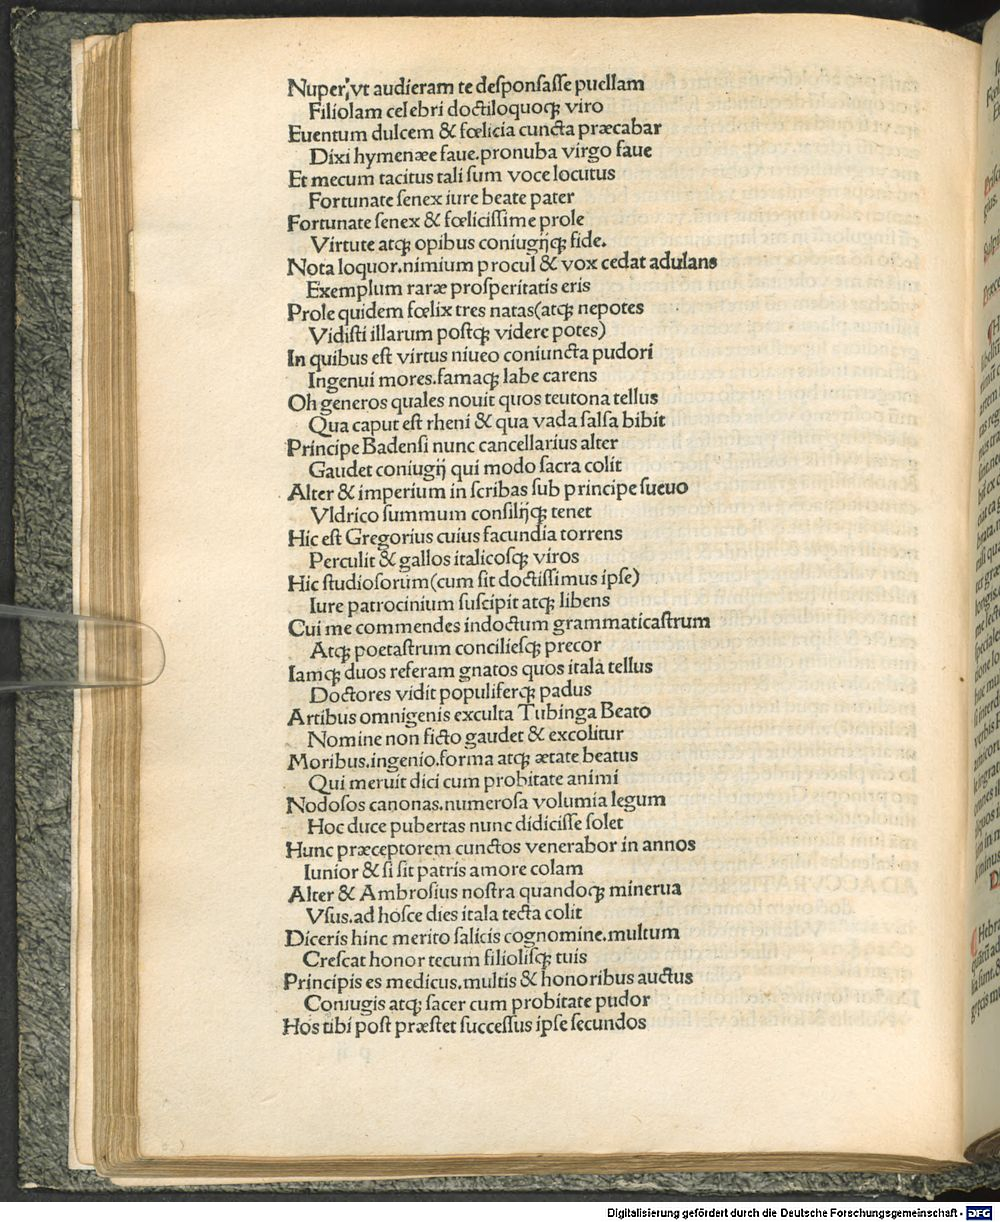 Nuper, vt audieram te desponsasse puellam
Filiolam celebri doctiloquoqꝫ viro
Euentum dulcem & fœlicia cuncta præcabar
Dixi hymenæe faue.pronuba virgo faue
Et mecum tacitus tali sum voce locutus
Fortunate senex iure beate pater
Fortunate senex & fœlicissime prole
Virtute atqꝫ opibus coniugijqꝫ fide.
Nota loquor.nimium procul & vox cedat adulans
Exemplum raræ prosperitatis eris
Prole quidem fœlix tres natas(atqꝫ nepotes
Vidisti illarum postqꝫ videre potes)
In quibus est virtus niueo coniuncta pudori
Ingenui mores.famaqꝫ labe carens
Oh generos quales nouit quos teutona tellus
Qua caput est rheni & qua vada salsa bibit
Principe Badensi nunc cancellarius alter
Gaudet coniugij qui modo sacra colit
Alter & imperium in scribas sub principe sueuo
Vldrico summum consilijqꝫ tenet
Hic est Gregorius cuius facundia torrens
Perculit & gallos italicosqꝫ viros
Hic studiosorum(cum sit doctissimus ipse)
Iure patrocinium suscipit atqꝫ libens
Cui me commendes indoctum grammaticastrum
Atqꝫ poetastrum conciliesqꝫ precor
Iamqꝫ duos referam gnatos quos itala tellus
Doctores vidit populiferqꝫ padus
Artibus omnigenis exculta Tubinga Beato
Nomine non ficto gaudet & excolitur
Moribus.ingenio.forma atqꝫ ætate beatus
Qui meruit dici cum probitate animi
Nodosos canonas.numerosa volumia legum
Hoc duce pubertas nunc didicisse solet
Hunc præceptorem cunctos venerabor in annos
Iunior & si sit patris amore colam
Alter & Ambrosius nostra quandoqꝫ minerua
Vsus.ad hosce dies itala tecta colit
Diceris hinc merito salicis cognomine.multum
Crescat honor tecum filiolisqꝫ tuis
Principis es medicus.multis & honoribus auctus
Coniugis atqꝫ sacer cum probitate pudor
Hos tibi post præstet successus ipse secundos
Digitalisierung gefördert durch die Deutsche Forschungsgemeinschaft - DFG